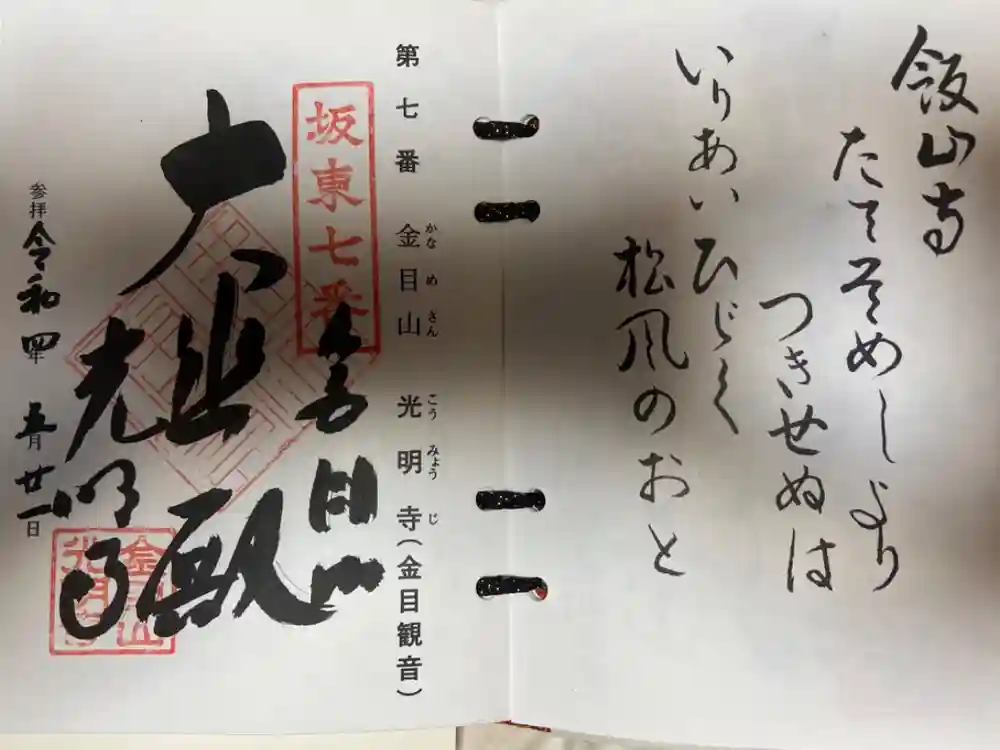 飯山寺
たてそめしより
つきせぬは
いりあいひびく
松風のおと
第七番 金目山 光明寺(金目観音)
かなめさん こうみょうじ
坂東七番
金目山
大悲殿
光明寺
参拝 令和四年 五月廿一日